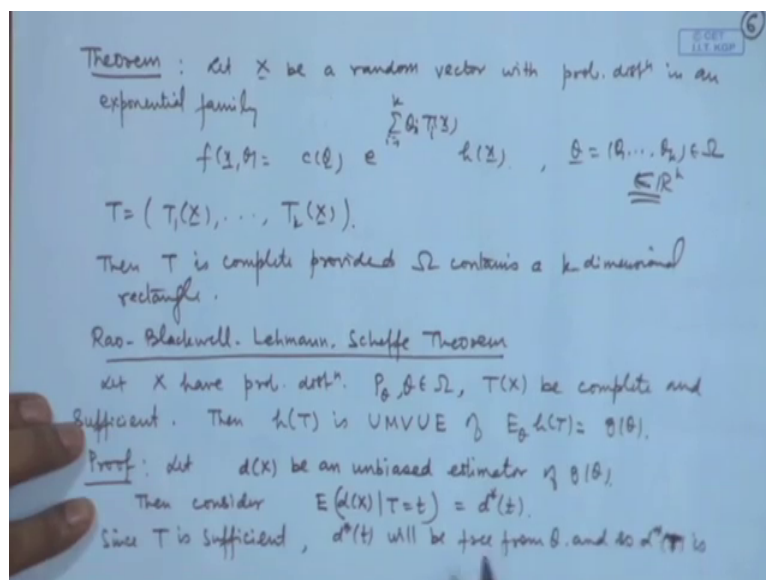 6
© CET
I.I.T. KGP
Theorem : Let X be a random vector with prob. distⁿ in an
exponential family
f(x, θ) = c(θ) e^{∑_{i=1}^{k} θi Ti(x)} h(x) , θ = (θ1, ..., θk) ∈ Ω
⊆ ℝᵏ
T = ( T₁(X), . . . , Tₖ(X) ).
Then T is complete provided Ω contains a k dimensional
rectangle.
Rao-Blackwell-Lehmann-Scheffe Theorem
Let X have prob. distⁿ. P_θ, θ ∈ Ω, T(X) be complete and
Sufficient. Then h(T) is UMVUE of E_θ h(T) = g(θ).
Proof : Let d(X) be an unbiased estimator of g(θ).
Then consider E(d(X) | T=t) = d*(t).
Since T is sufficient, d*(t) will be free from θ. and so d*(T) is